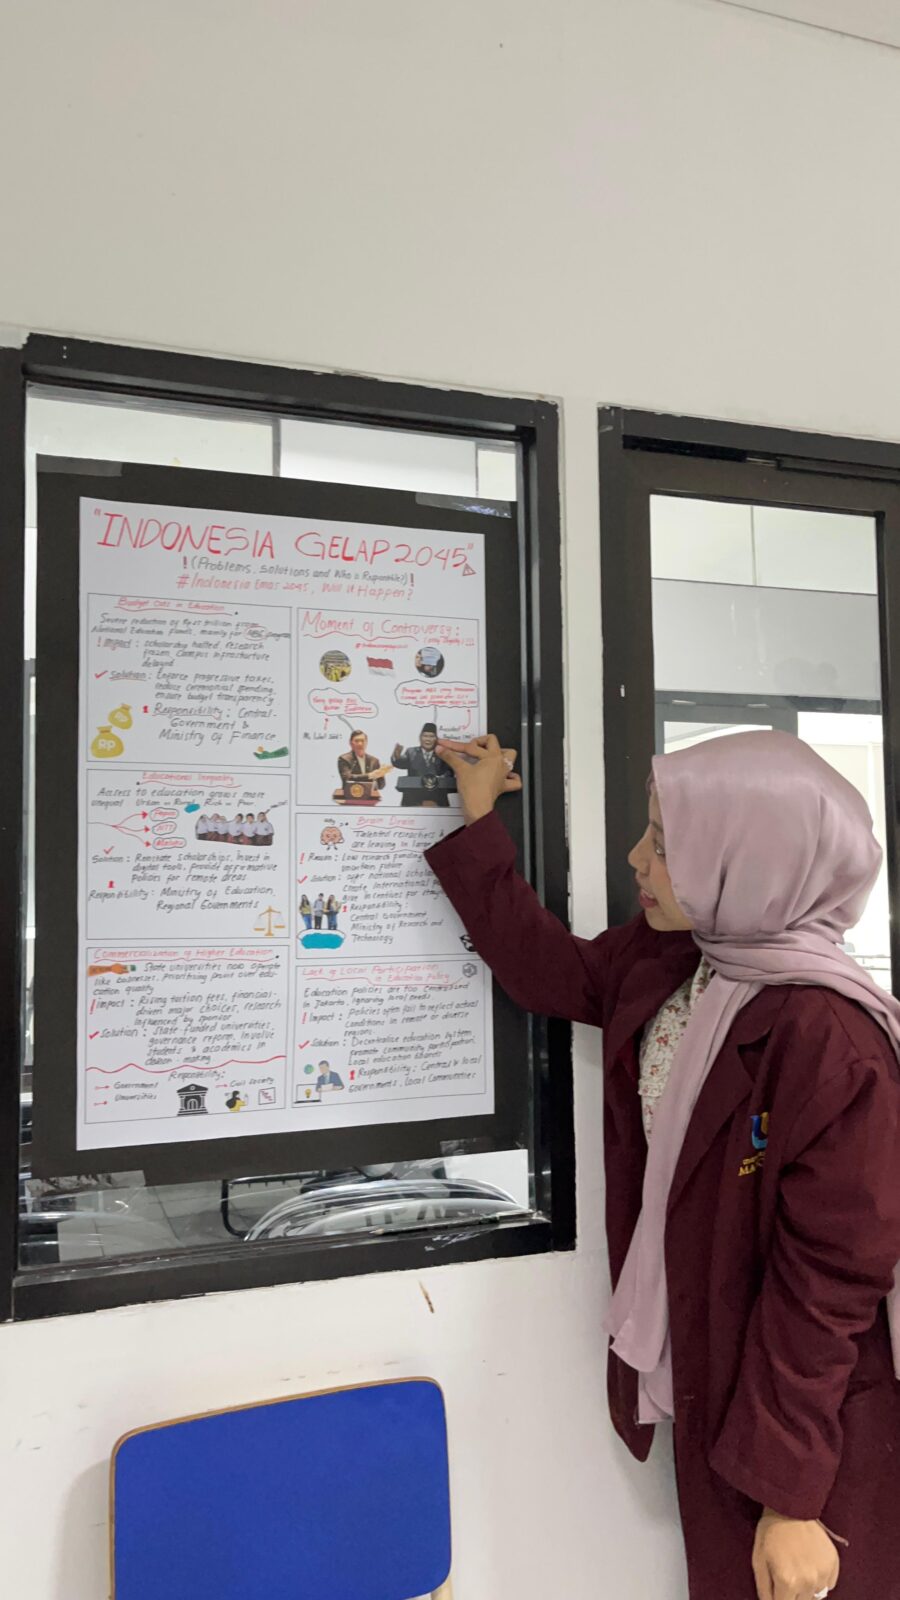 "INDONESIA GELAP 2045"
! (Problems, Solutions and Who is Responsible?) !
#Indonesia Emas 2045, Will it Happen?
Budget Cuts in Education
Severe reduction of Rp trillion from
National Education funds, mainly for MBG program
! Impact : scholarship halted, research
frozen, campus infrastructure
delayed
Solution : Enforce progressive taxes,
reduce ceremonial spending,
ensure budget transparency
Responsibility : Central-
Government &
Ministry of Finance
Rp
Rp
Moment of Controversy :
Yang gelap kau
bukan Indonesia
Program MBG yang
Educational Inequality
Access to education grows more
unequal Urban vs Rural Rich vs Poor
Papua
NTT
Maluku
Solution : Reinstate scholarships, invest in
digital tools, provide affirmative
policies for remote areas
Responsibility : Ministry of Education,
Regional Governments
Brain Drain
Talented researchers &
are leaving in large
! Reason : Low research funding
uncertain future
Solution : offer national
create International
give incentives for
Responsibility :
Central Government
Ministry of Research and
Technology
Commercialization of Higher Education
State universities now operate
like businesses, prioritizing profit over edu-
cation quality
! Impact : Rising tuition fees, financial-
driven major choices, research
influenced by sponsor
Solution : State funded universities,
governance reform, involve
students & academics in
decision-making
Responsibility :
Government
Universities
Civil Society
Lack of Local Participation
in Education Policy
Education policies are too centralized
in Jakarta, ignoring local needs
! Impact : Policies often fail to reflect actual
conditions in remote or diverse
regions
Solution : Decentralize education system,
promote community participation,
local education boards
Responsibility : Central & local
Governments, Local Communities